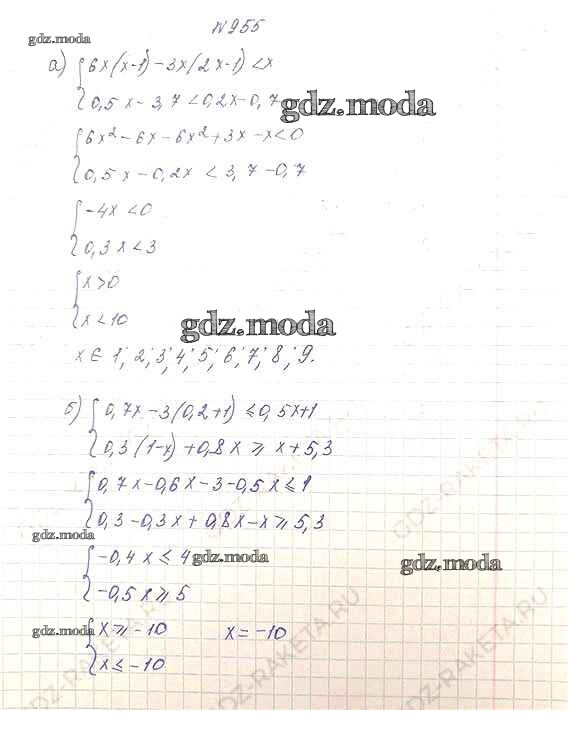 №955
gdz.moda
а) { 6x(x-1)-3x(2x-1)<x
0,5x-3,7<0,2x-0,7
gdz.moda
{ 6x²-6x-6x²+3x-x<0
0,5x-0,2x<3,7-0,7
gdz.moda
{ -4x<0
0,3x<3
{ x>0
x<10
gdz.moda
x ∈ 1; 2; 3; 4; 5; 6; 7; 8; 9.
б) { 0,7x-3(0,2+1)≤0,5x+1
0,3(1-x)+0,8x≥x+5,3
{ 0,7x-0,6x-3-0,5x≤1
0,3-0,3x+0,8x-x≥5,3
gdz.moda
{ -0,4x≤4
gdz.moda
gdz.moda
-0,5x≥5
gdz.moda
{ x≥-10 x=-10
x≤-10
GDZ-RAKETA.RU
GDZ-RAKETA.RU
GDZ-RAKETA.RU
GDZ-RAKETA.RU